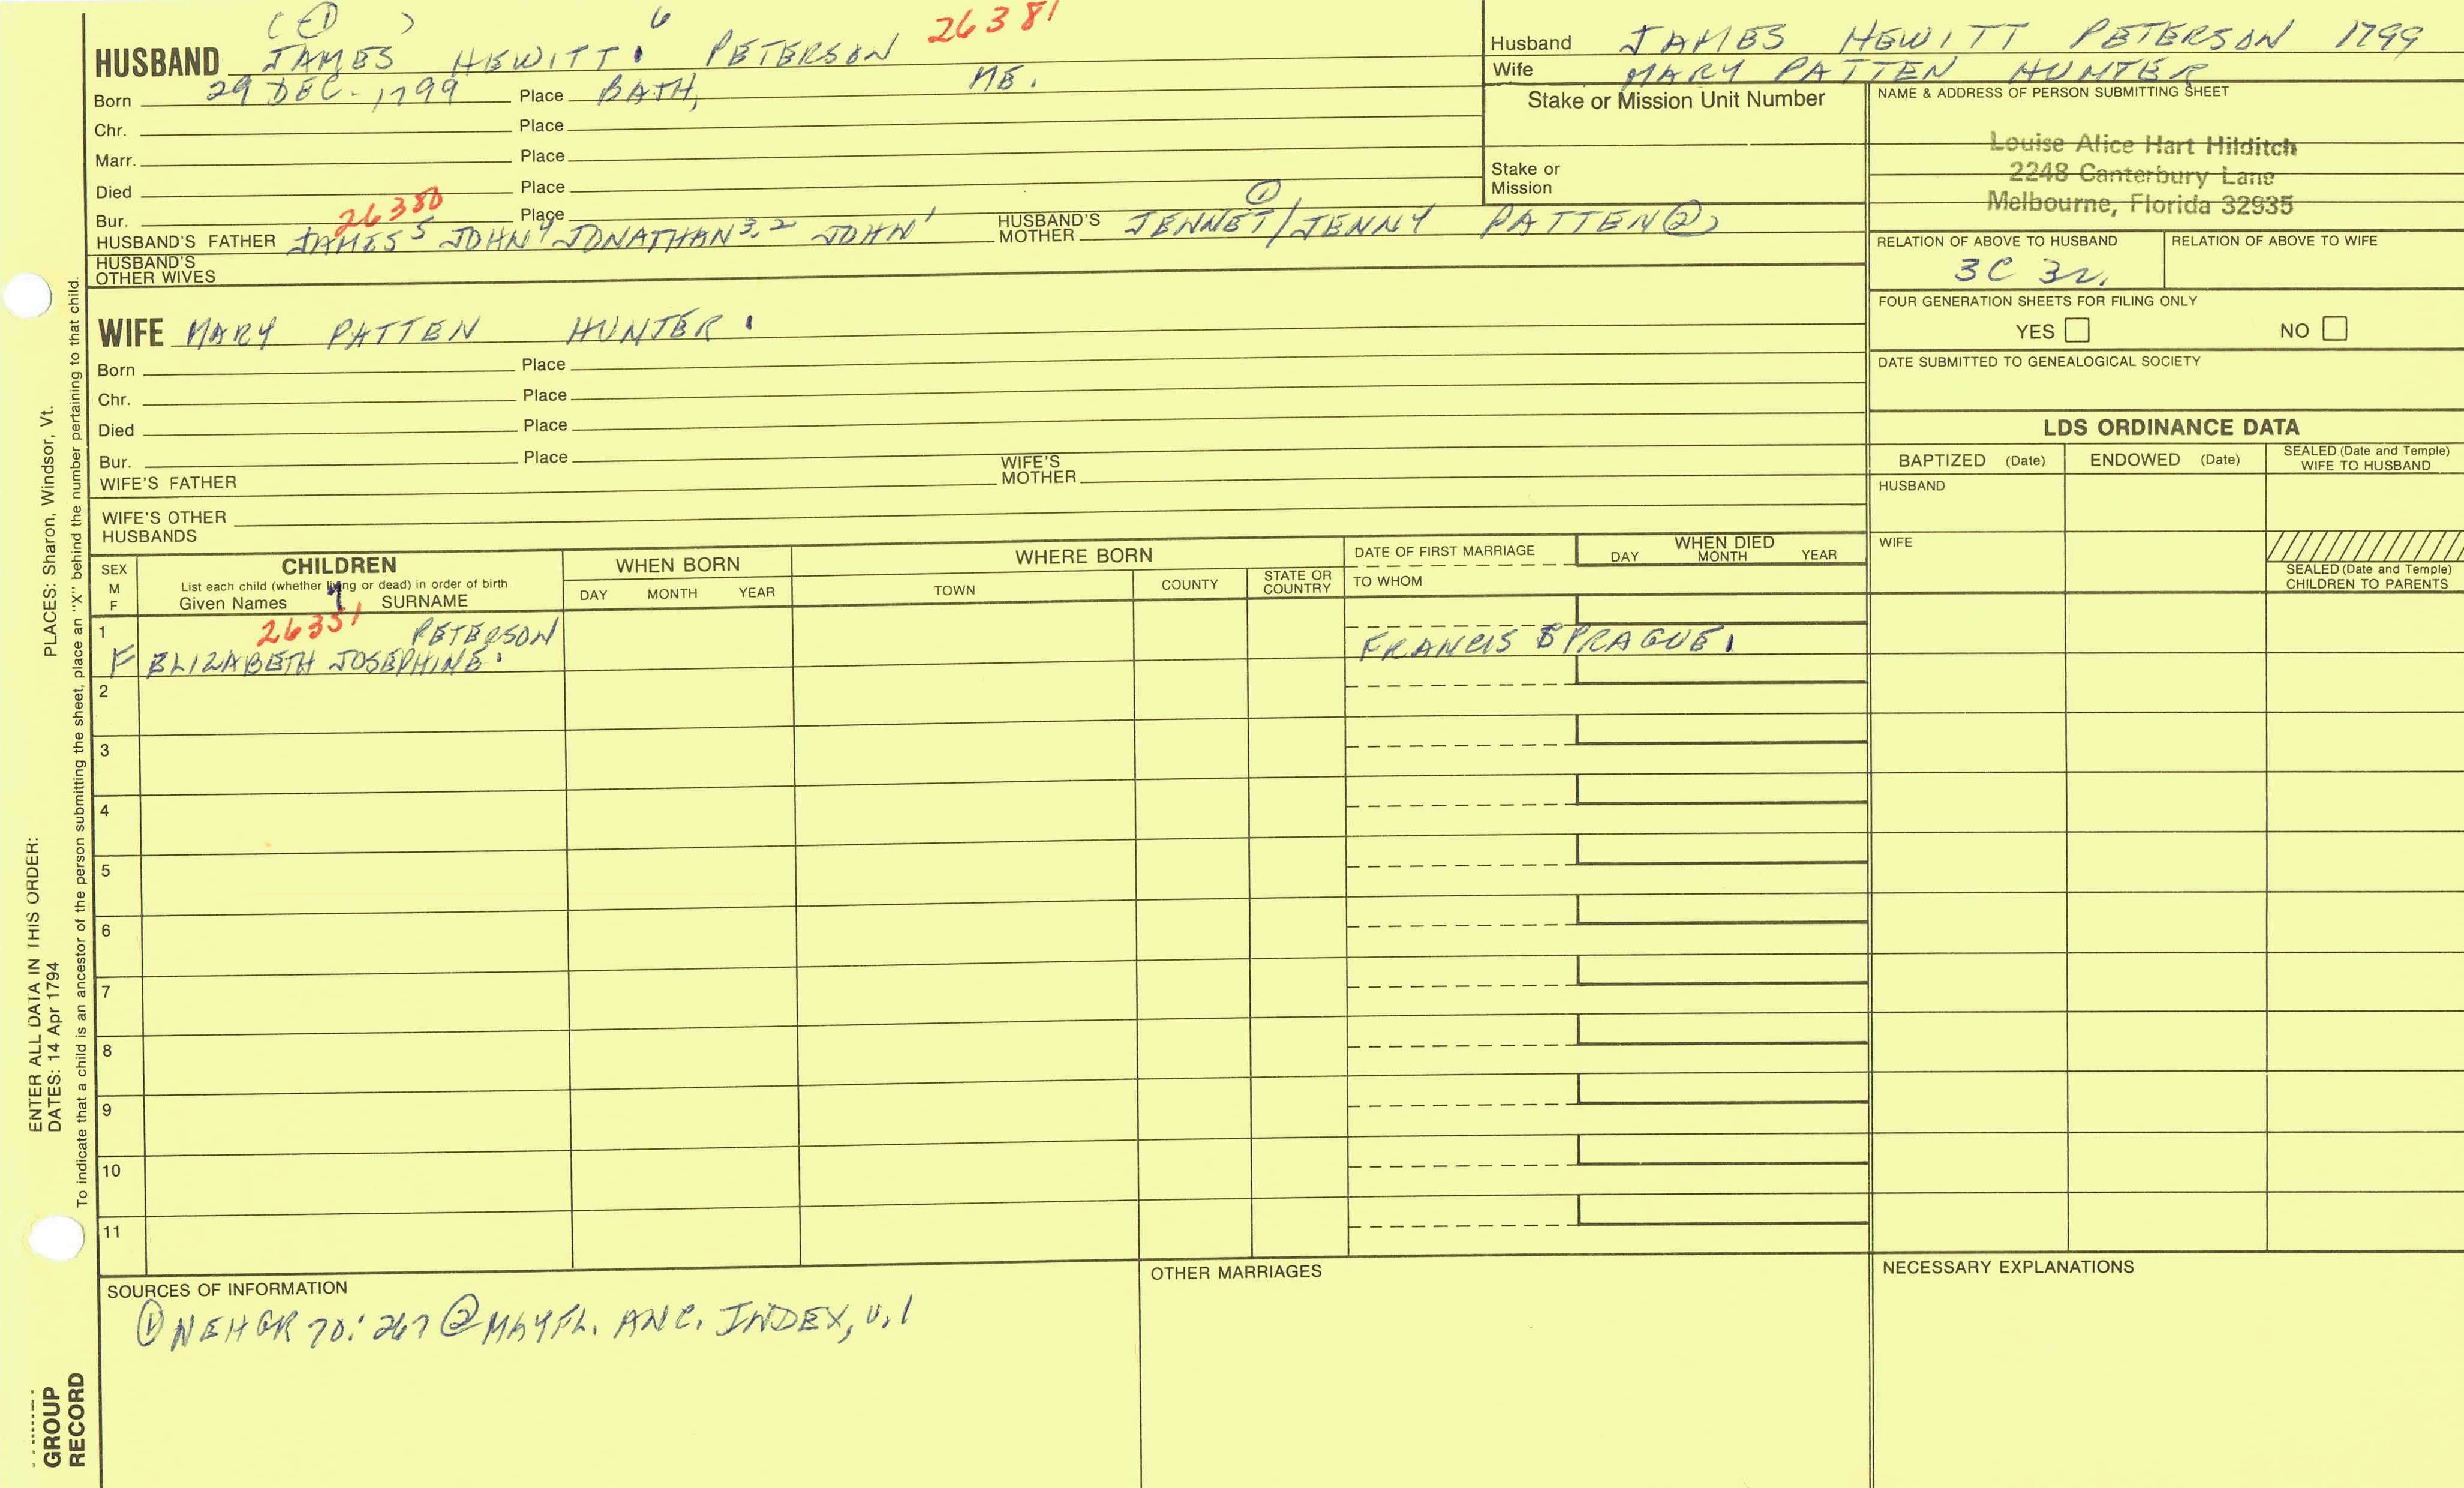 ( ED ) 6 26381
HUSBAND JAMES HEWITT PETERSON
Born 29 DEC. 1799 Place BATH, ME.
Chr. Place
Marr. Place
Died Place
Bur. Place
26380
HUSBAND'S FATHER JAMES⁵ JOHN⁴ JONATHAN³,² JOHN¹ HUSBAND'S MOTHER JENNET①/JENNY PATTEN②
HUSBAND'S OTHER WIVES
WIFE MARY PATTEN HUNTER
Born Place
Chr. Place
Died Place
Bur. Place
WIFE'S FATHER WIFE'S MOTHER
WIFE'S OTHER HUSBANDS
Husband JAMES HEWITT PETERSON 1799
Wife MARY PATTEN HUNTER
Stake or Mission Unit Number
Stake or Mission
NAME & ADDRESS OF PERSON SUBMITTING SHEET
Louise Alice Hart Hilditch
2248 Canterbury Lane
Melbourne, Florida 32935
RELATION OF ABOVE TO HUSBAND RELATION OF ABOVE TO WIFE
3C 3r.
FOUR GENERATION SHEETS FOR FILING ONLY
YES NO
DATE SUBMITTED TO GENEALOGICAL SOCIETY
LDS ORDINANCE DATA
BAPTIZED (Date) ENDOWED (Date) SEALED (Date and Temple) WIFE TO HUSBAND
HUSBAND
WIFE
SEALED (Date and Temple) CHILDREN TO PARENTS
SEX M F
CHILDREN
List each child (whether living or dead) in order of birth
Given Names 7 SURNAME
WHEN BORN
DAY MONTH YEAR
WHERE BORN
TOWN COUNTY STATE OR COUNTRY
DATE OF FIRST MARRIAGE
TO WHOM
WHEN DIED
DAY MONTH YEAR
1 26351 PETERSON
F ELIZABETH JOSEPHINE. FRANCIS SPRAGUE.
2
3
4
5
6
7
8
9
10
11
SOURCES OF INFORMATION
① NEHGR 70:267 ② MAYFL. ANC. INDEX, v.1
OTHER MARRIAGES
NECESSARY EXPLANATIONS
ENTER ALL DATA IN THIS ORDER:
DATES: 14 Apr 1794 PLACES: Sharon, Windsor, Vt.
To indicate that a child is an ancestor of the person submitting the sheet, place an "X" behind the number pertaining to that child.
GROUP
RECORD